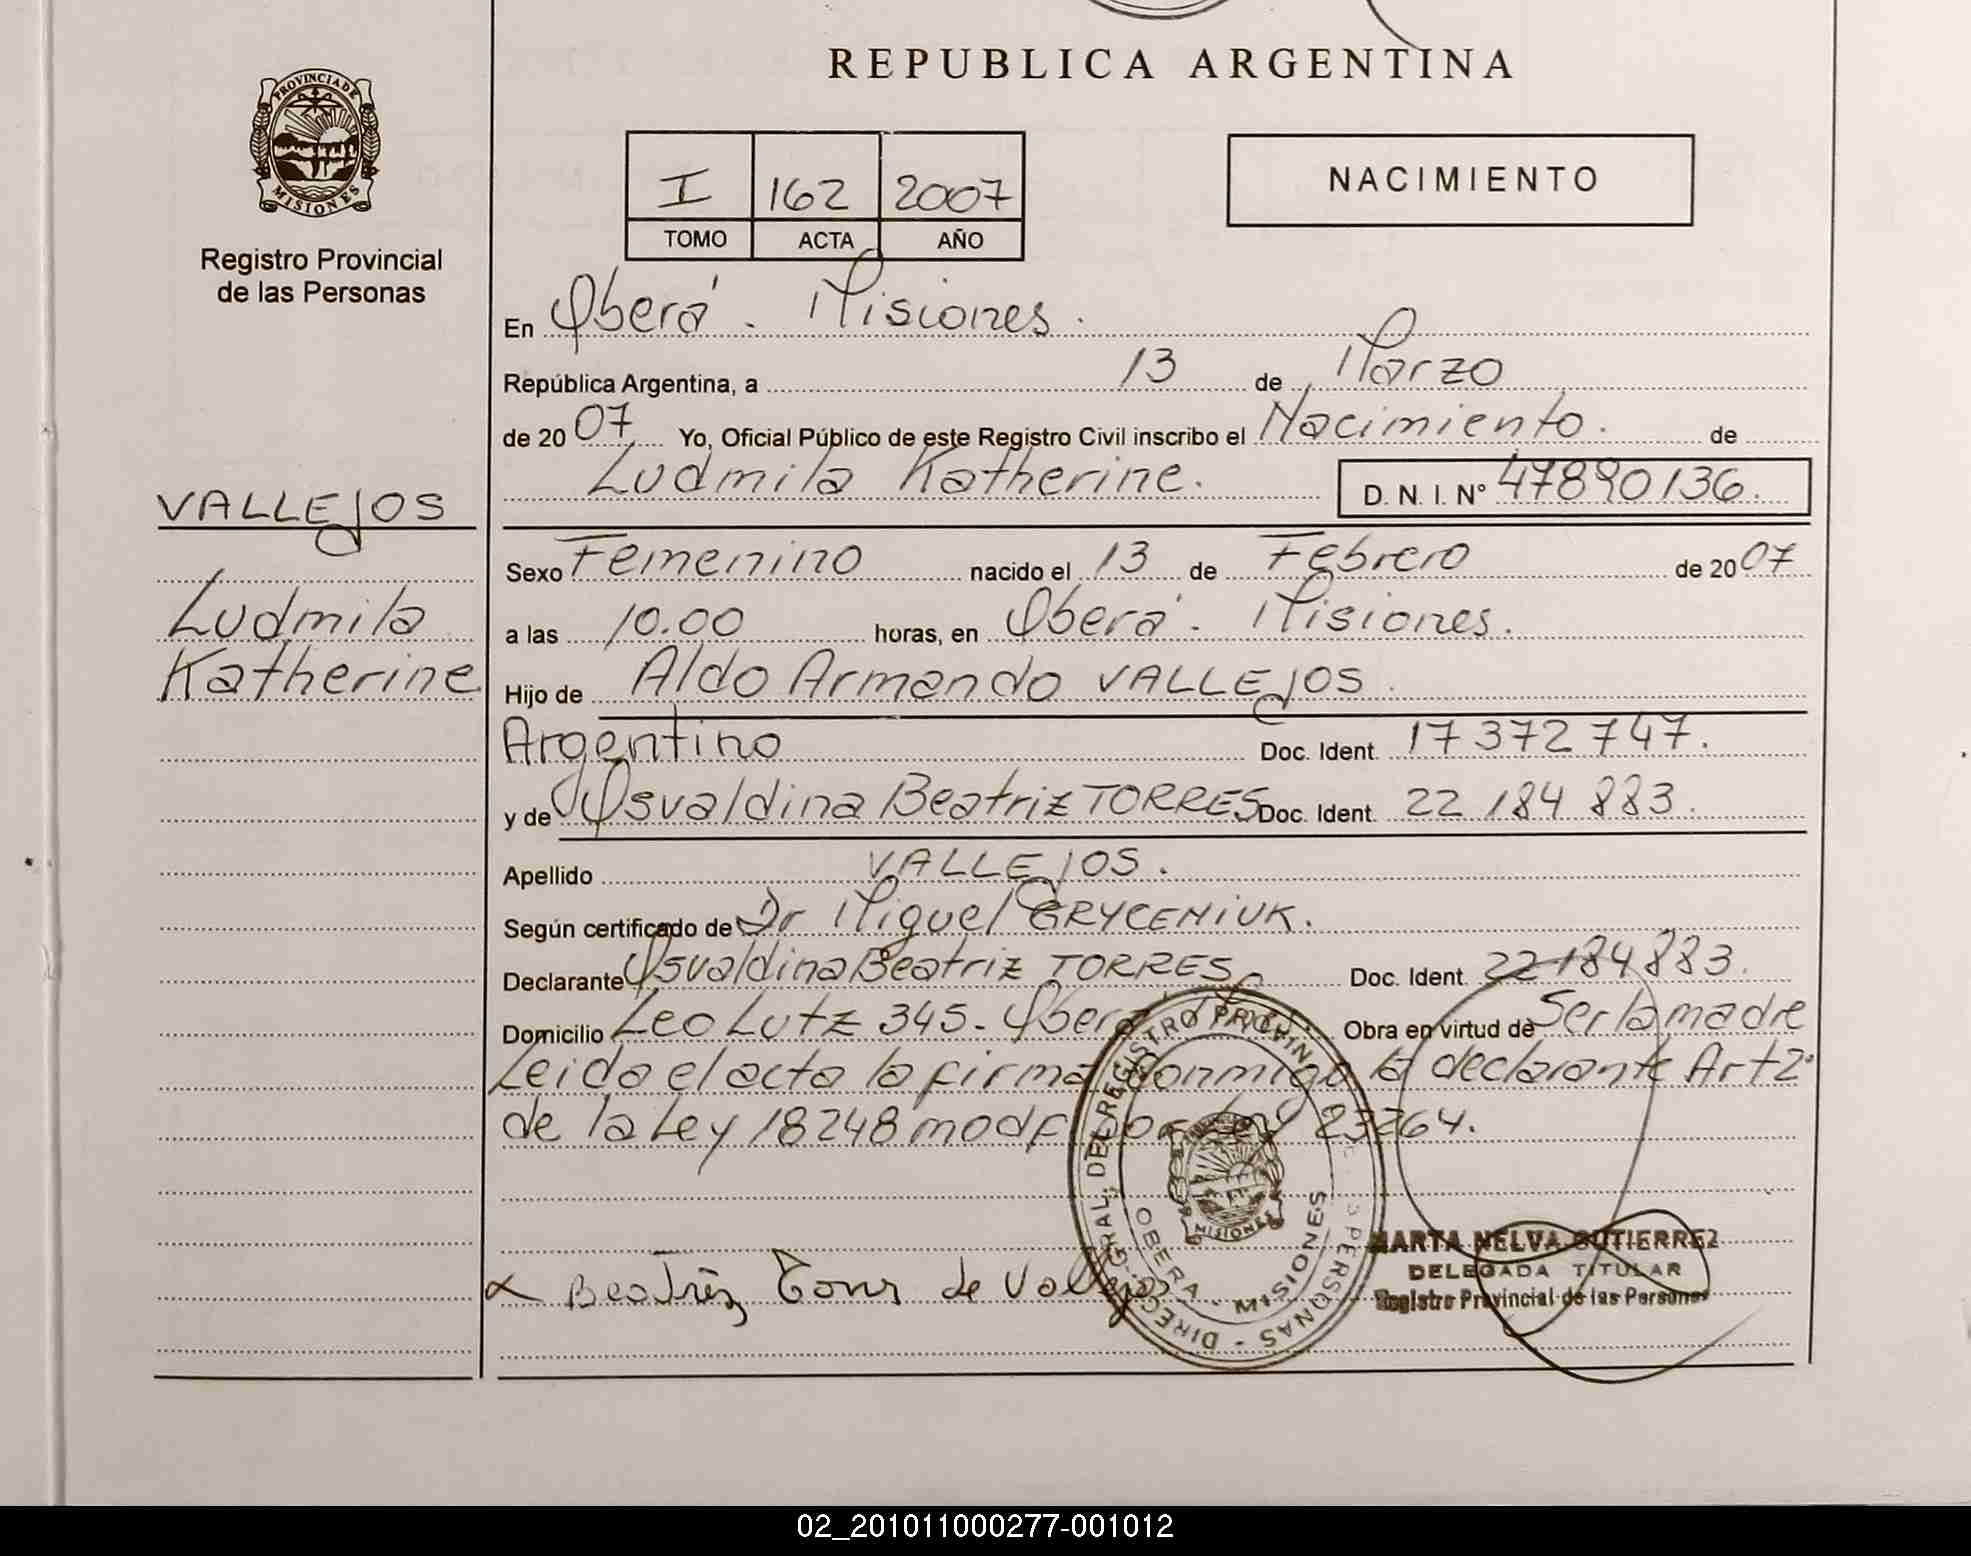 REPUBLICA ARGENTINA
PROVINCIA DE
MISIONES
Registro Provincial
de las Personas
I 162 2007
TOMO ACTA AÑO
NACIMIENTO
En Oberá. Misiones.
República Argentina, a 13 de Marzo
de 2007 Yo, Oficial Público de este Registro Civil inscribo el Nacimiento. de
Ludmila Katherine. D. N. I. N° 47890136.
VALLEJOS
Ludmila
Katherine
Sexo Femenino nacido el 13 de Febrero de 2007
a las 10.00 horas, en Oberá. Misiones.
Hijo de Aldo Armando VALLEJOS.
Argentino Doc. Ident. 17 372 747.
y de Osvaldina Beatriz TORRES Doc. Ident. 22 184 883.
Apellido VALLEJOS.
Según certificado de Dr Miguel GRYCENIUK.
Declarante Osvaldina Beatriz TORRES Doc. Ident. 22184883.
Domicilio Leo Lutz 345. Oberá Obra en virtud de Ser la madre
Leida el acta la firma conmigo la declarante Art 2°
de la Ley 18248 modf por Ley 23264.
DIRECC. GRAL. DEL REGISTRO PROVIN. PERSONAS
MISIONES
OBERA - MISIONES
Beatriz Torres de Vallejos
MARTA NELVA GUTIERREZ
DELEGADA TITULAR
Registro Provincial de las Personas
02_201011000277-001012